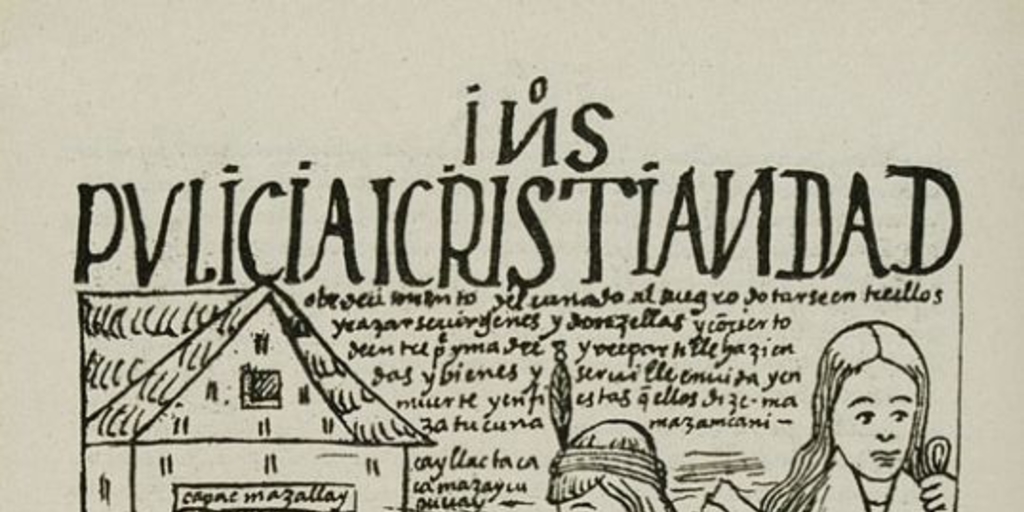 INS
PVLICIA I CRISTIANDAD
obedecimento del cunado al suegro dotarse entrellos
y cazarse uirgenes y donzellas y cōcierto
de entre pe y madre y rrepartille hazien
das y bienes y seruille en uida y en
muerte y en fi estas q̃ ellos dize - ma
za tu cuna mazamcani -
cayllactaca
camazaycu
capac mazallay